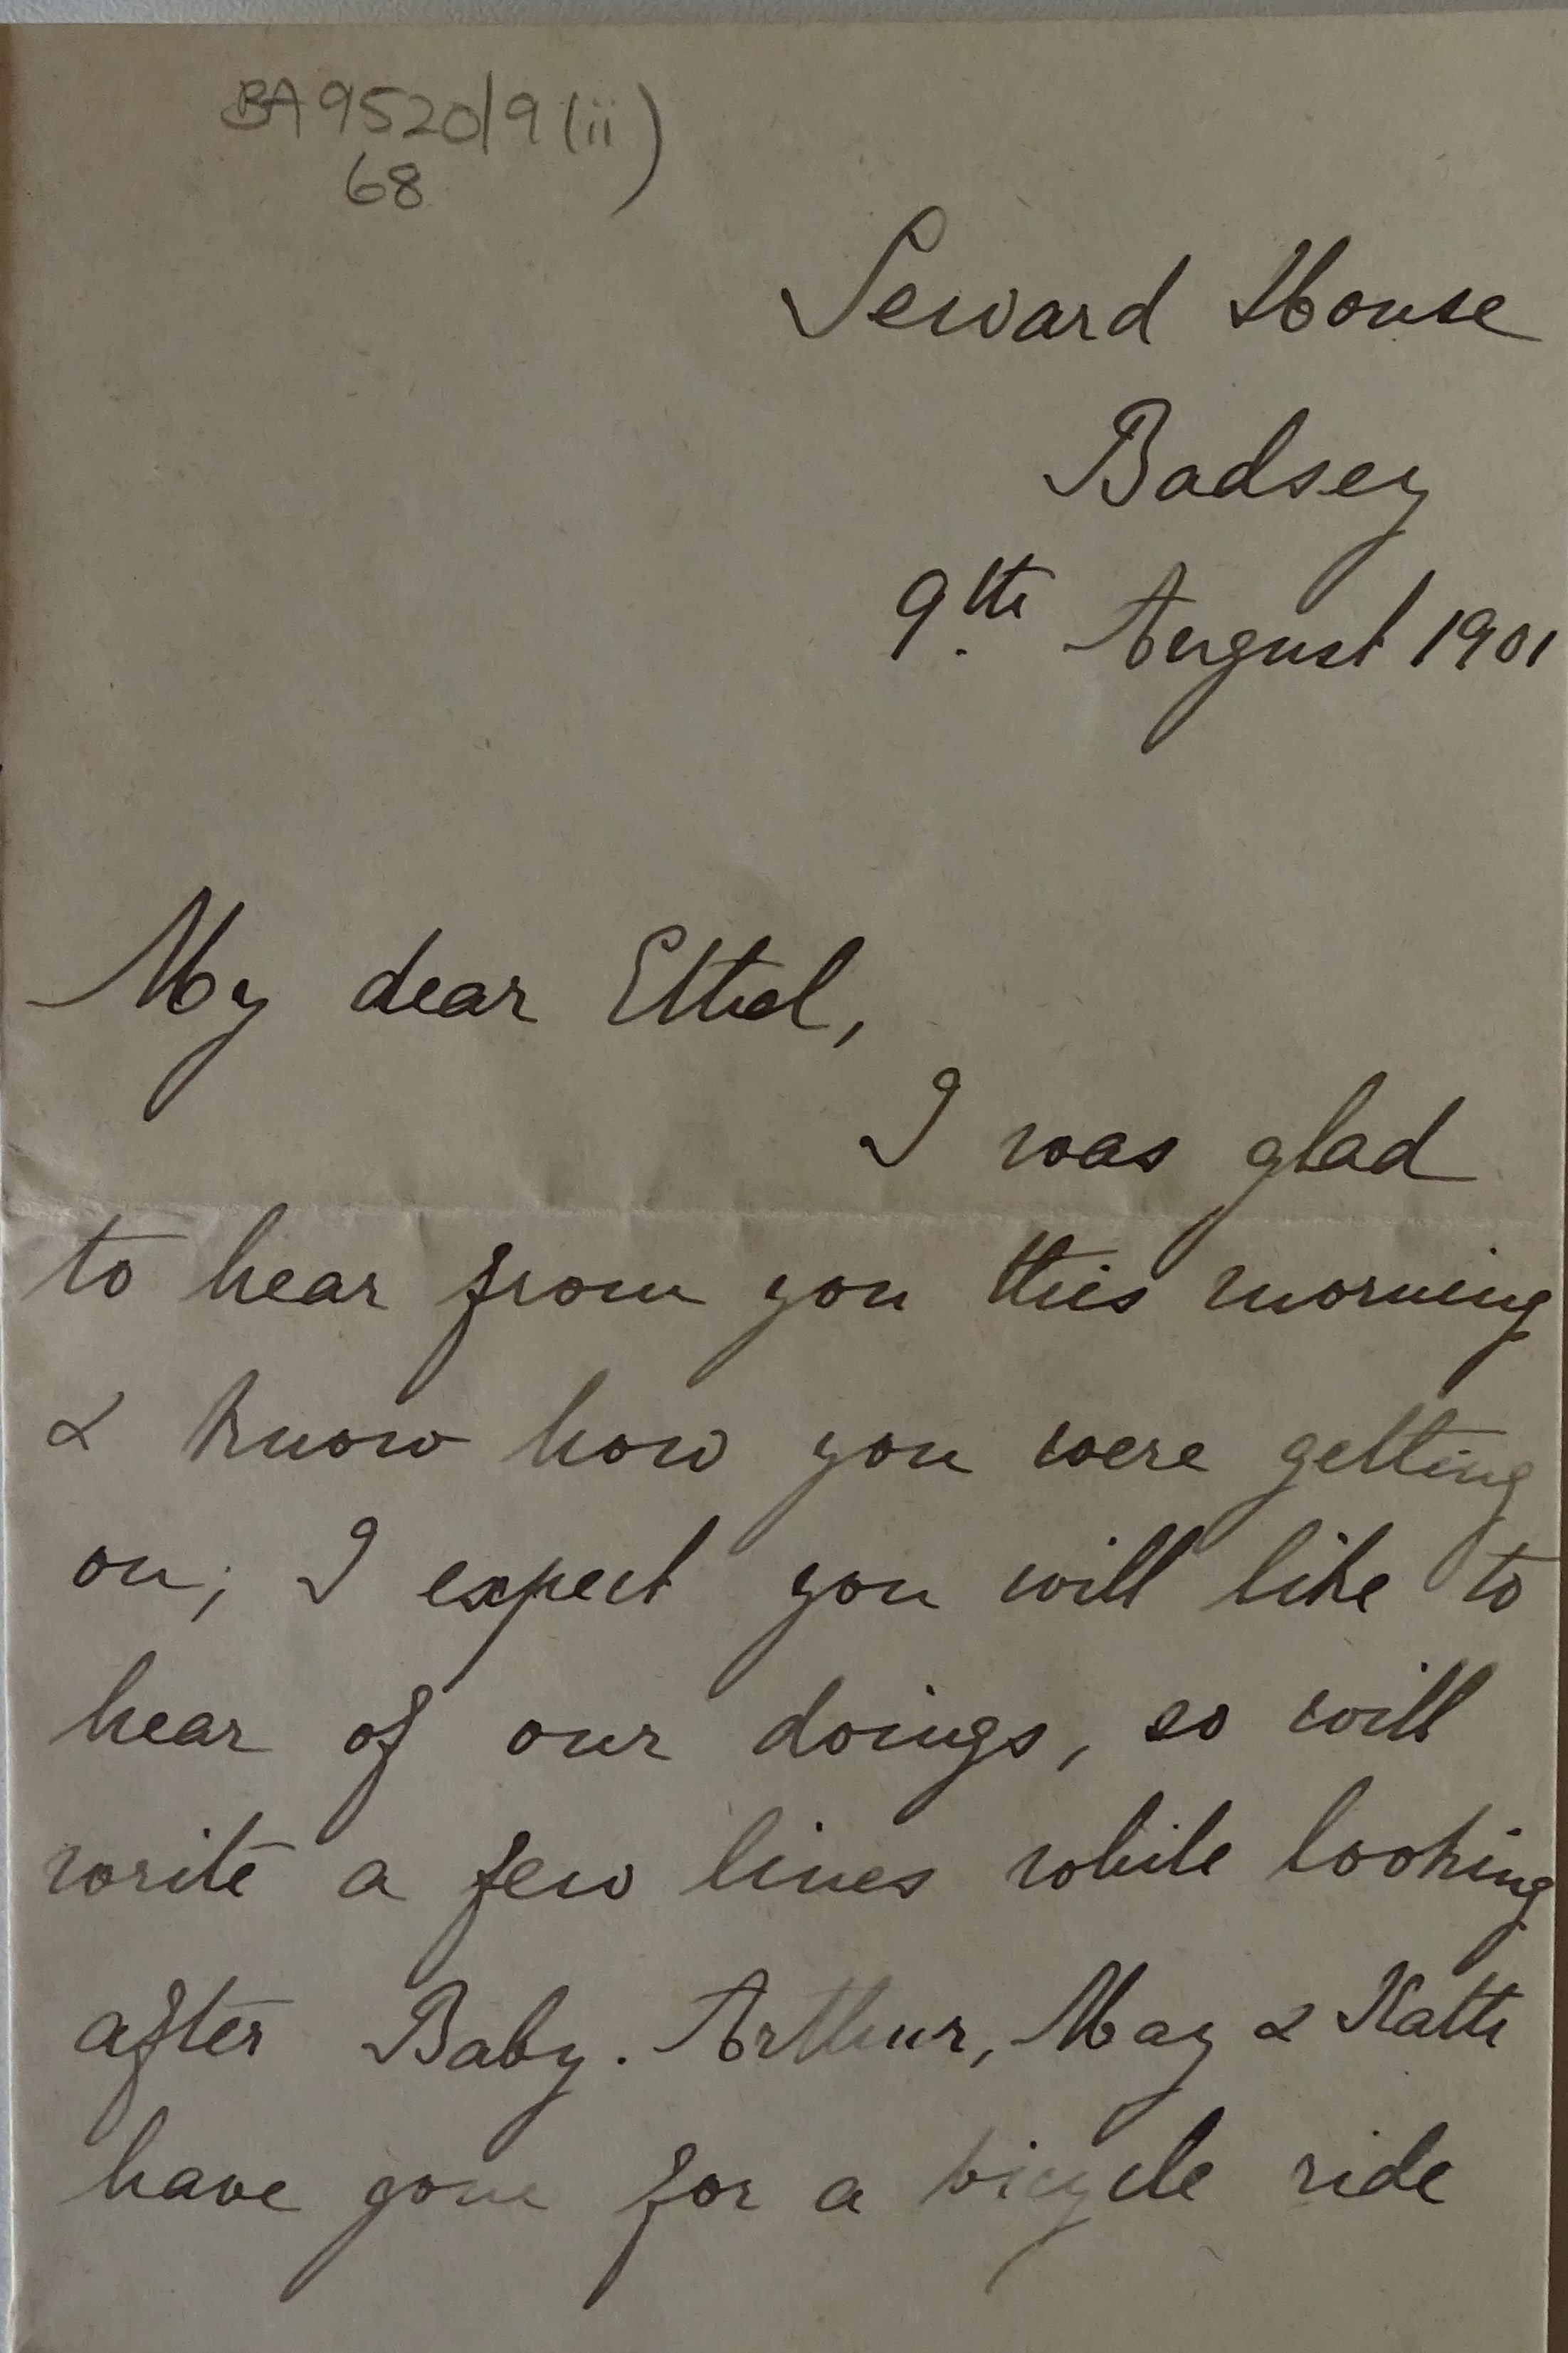 BA9520/9(ii)
68
Seward House
Badsey
9th. August 1901
My dear Ethel,
I was glad
to hear from you this morning
& know how you were getting
on; I expect you will like to
hear of our doings, so will
write a few lines while looking
after Baby. Arthur, May & Kath
have gone for a bicycle ride